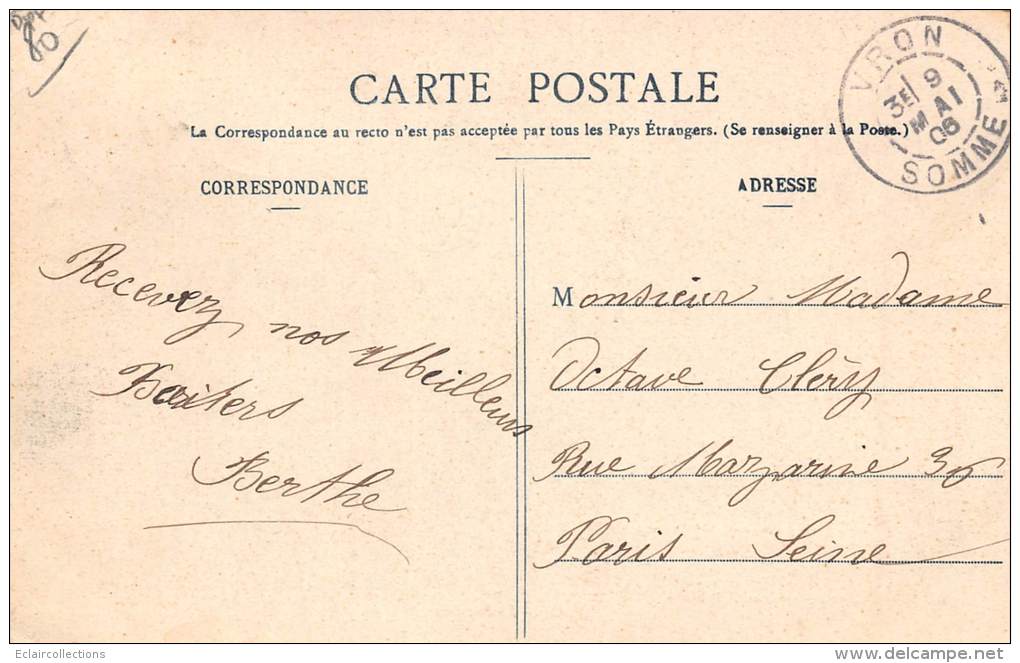 Dpt
80
CARTE POSTALE
La Correspondance au recto n'est pas acceptée par tous les Pays Étrangers. (Se renseigner à la Poste.)
VRON
3E 9
MAI
06
SOMME
CORRESPONDANCE
Recevez nos Meilleurs
Baisers
Berthe
ADRESSE
Monsieur Madame
Octave Cléry
Rue Mazarine 36
Paris Seine
Eclaircollections
www.delcampe.net